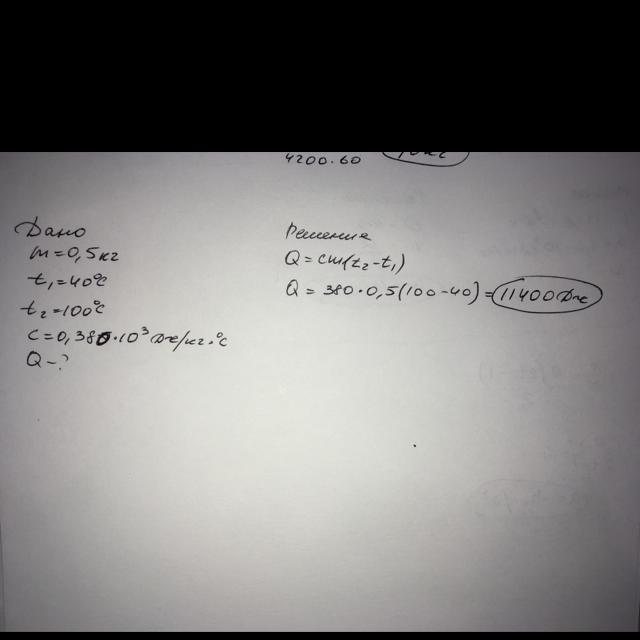 4200·60
Дано
m=0,5кг
t₁=40°C
t₂=100°C
C=0,380·10³ Дж/кг·°C
Q-?
Решение
Q=cm(t₂-t₁)
Q=380·0,5(100-40)=11400Дж